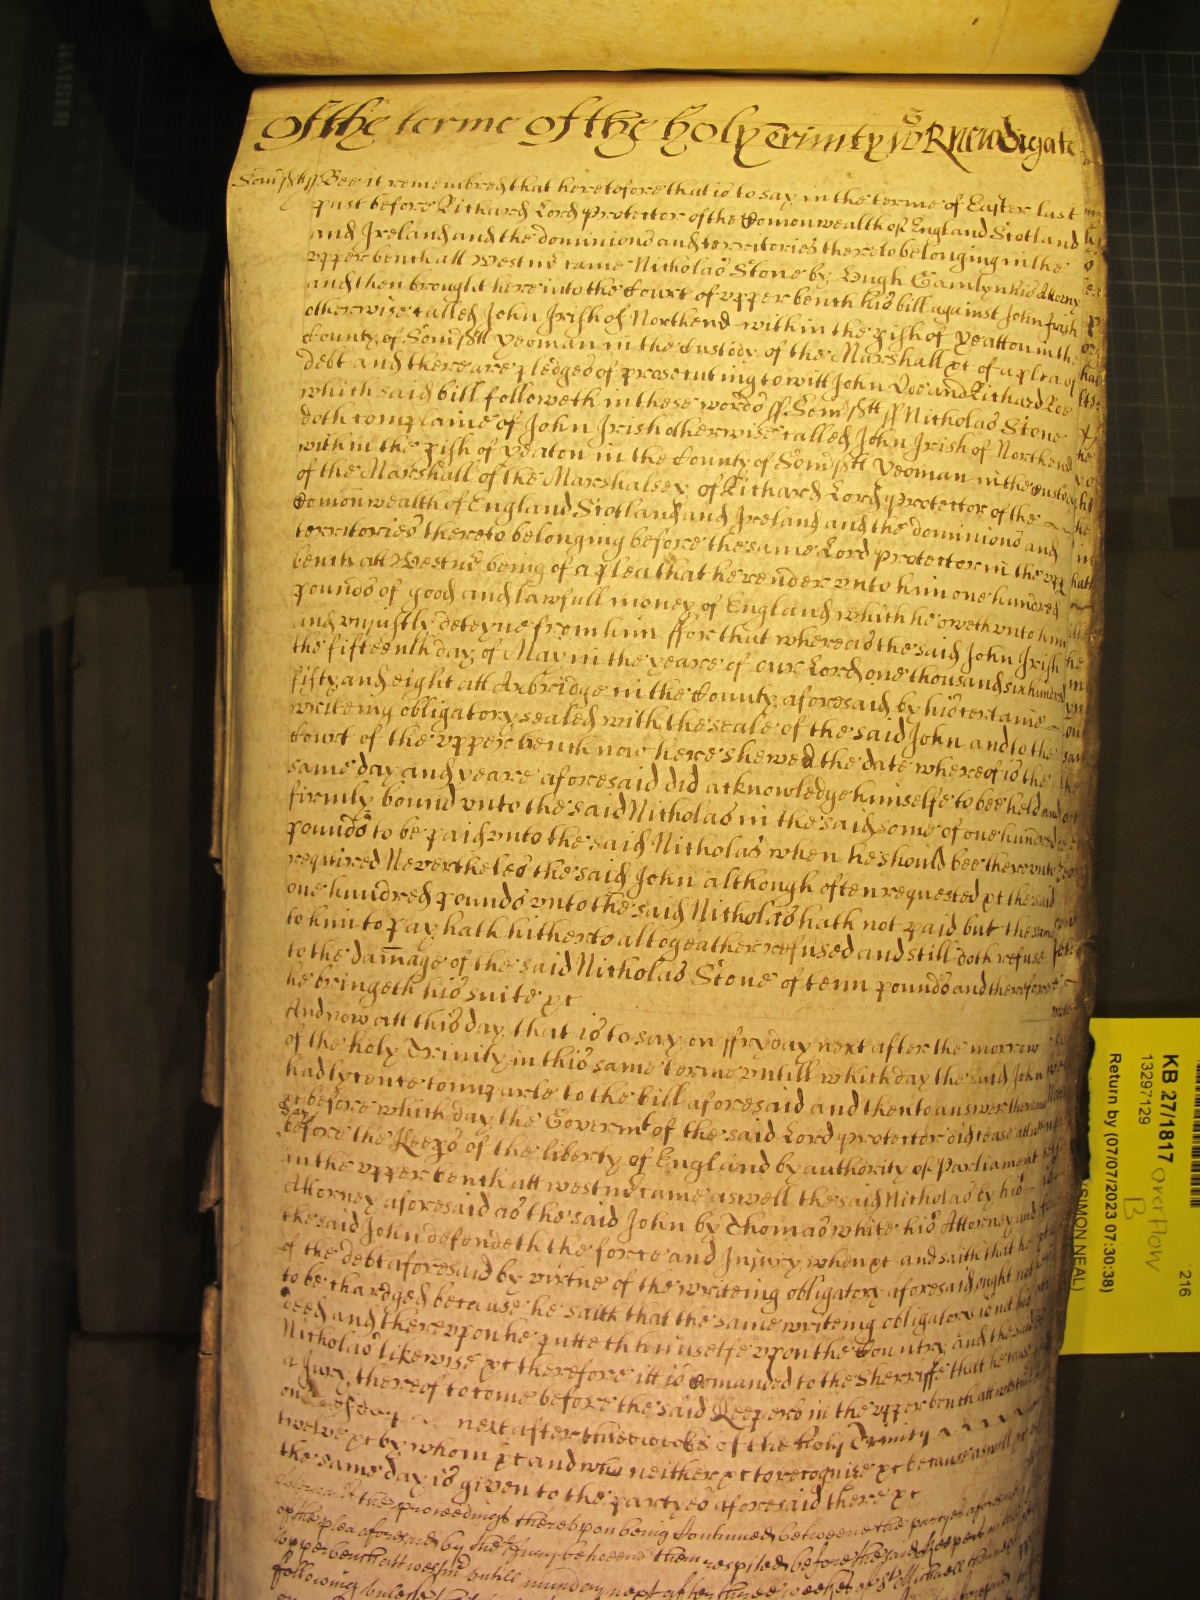 Of the terme Of the holy Trinity 1659 R Newdigate
Som'sett ss Bee it remembred that heretofore that is to say in the terme of Easter last
past before Richard Lord Protector of the Comonwealth of England Scotland
and Ireland and the dominions and territories thereto belonging in the
vpper bench att Westm' came Nicholas Stone by Hugh Gamlyn his Attorny
and then brought here into the Court of vpper bench his bill against John Irish
otherwise called John Irish of Northend within the p'ish of Yeatton in the
County of Som'sett yeoman in the Custody of the Marshall &c of a plea of
debt and there are pledges of prosecuting to witt John Doe and Richard Roe
which said bill followeth in these words ss Som'sett ss Nicholas Stone
doth complaine of John Irish otherwise called John Irish of Northend
within the p'ish of Yeaton in the County of Som'sett yeoman in the custody
of the Marshall of the Marshalsey of Richard Lord Protector of the
Comonwealth of England Scotland and Ireland and the dominions and
territories thereto belonging before the same Lord Protector in the vpp
bench att Westm' being of a plea that he render vnto him one hundred
pounds of good and lawfull money of England which he oweth vnto him
and vnjustly deteyne from him ffor that whereas the said John Irish
the fifteenth day of May in the yeare of our Lord one thousand six hundred
fifty and eight att Axbridge in the County aforesaid by his certaine
writeing obligatory sealed with the seale of the said John and to the
Court of the vpper bench now here shewed the date whereof is the
same day and yeare aforesaid did acknowledge himselfe to bee held and
firmly bound vnto the said Nicholas in the said some of one hundred
pounds to be paid vnto the said Nicholas when he should bee therevnto
required Nevertheles the said John although often requested &c the said
one hundred pounds vnto the said Nicholas hath not paid but the same
to him to pay hath hitherto altogeather refused and still doth refuse
to the damage of the said Nicholas Stone of tenn pounds and therefore
he bringeth his suite &c
And now att this day that is to say on ffryday next after the morrow
of the holy Trinity in this same terme vntill which day the said John
had lycence to imparle to the bill aforesaid and then to answer
&c before which day the Governmt of the said Lord Protector did cease
before the Keep's of the liberty of England by authority of Parliament
in the vpper bench att westm' came aswell the said Nicholas by his
Attorney aforesaid as the said John by Thomas White his Attorney and
the said John defendeth the force and Injury when &c and saith that he
of the debt aforesaid by virtue of the writeing obligatory aforesaid ought not
to be chardged because he saith that the same writeing obligatory is not his
deed and therevpon he putteth himselfe vpon the Country and the said
Nicholas likewise &c therefore itt is Comanded to the Sherriffe that he cause
a Jury thereof to come before the said Keepers in the vpper bench att
on next after three weeks of the holy Trinity
twelve &c by whom &c and who neither &c to recognise &c because aswell
the same day is given to the partyes aforesaid there &c
the proceedings therevpon being Continued betweene the partyes aforesaid
of the plea aforesaid by the Jury betweene them respited before the said Keepers
vpper bench att westm' vntill munday next after three weekes of St Michaell
following vnlesse
KB 27/1817 overflow
B
13297129
216
Return by (07/07/2023 07:30:38)
(SIMON NEAL)
KAISER